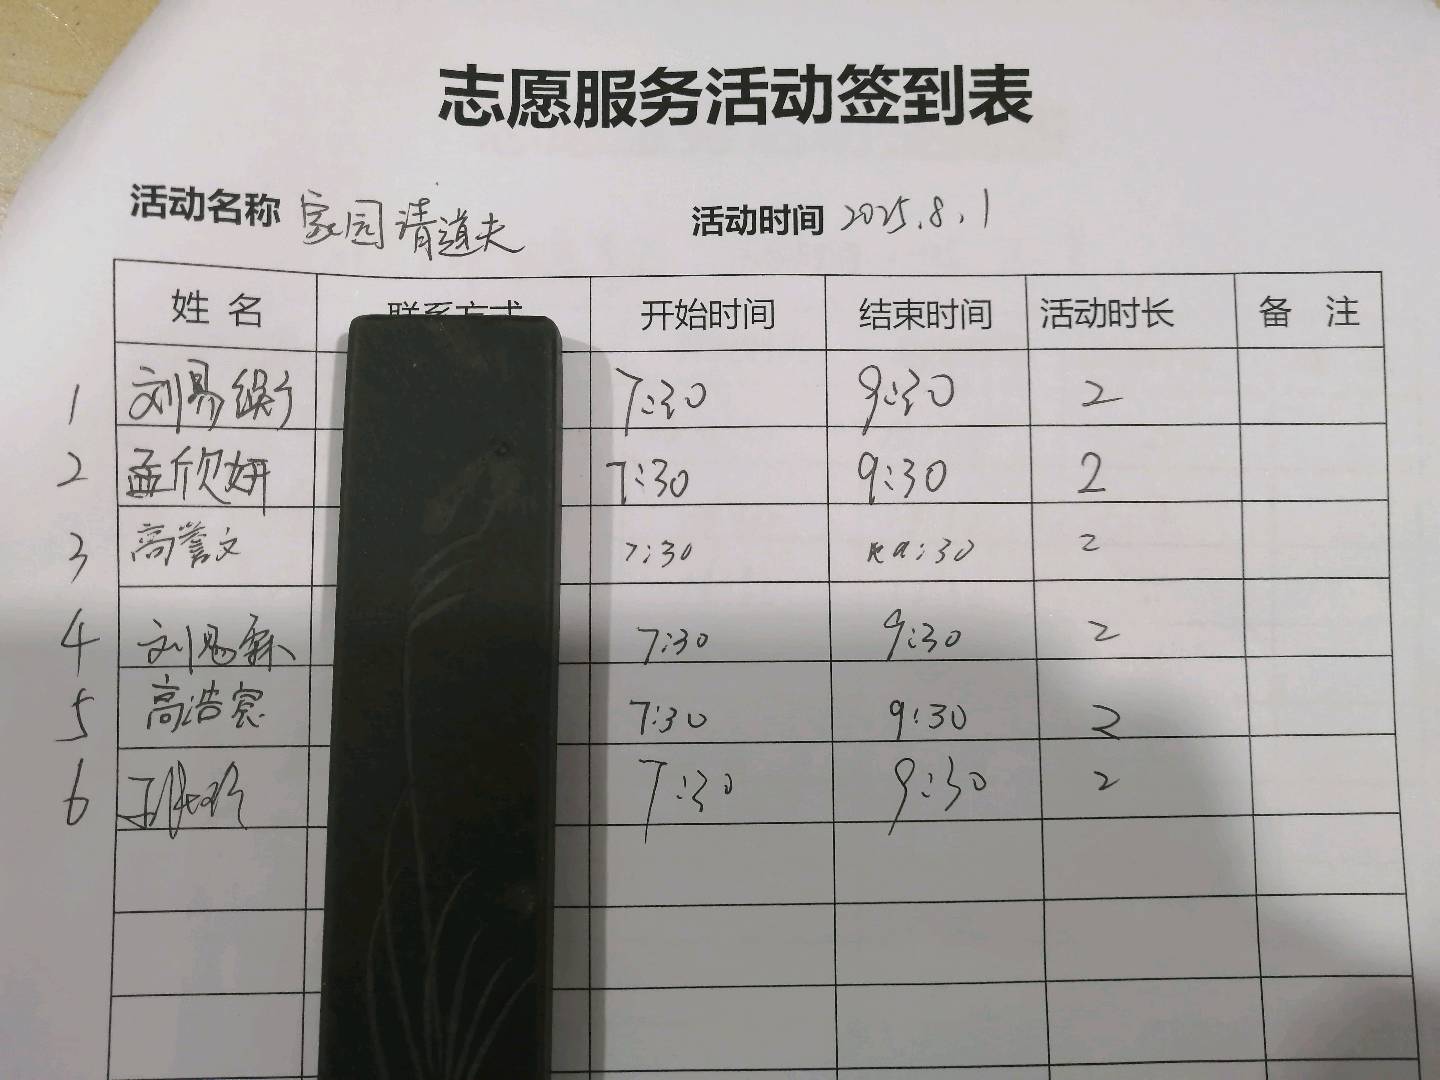 志愿服务活动签到表
活动名称 家园清道夫 活动时间 2025.8.1
姓 名 联系方式 开始时间 结束时间 活动时长 备 注
1 刘易 7:30 9:30 2
2 孟欣妍 7:30 9:30 2
3 高誉文 7:30 :30 2
4 刘思霖 7:30 9:30 2
5 高浩宸 7:30 9:30 2
6 7:30 9:30 2